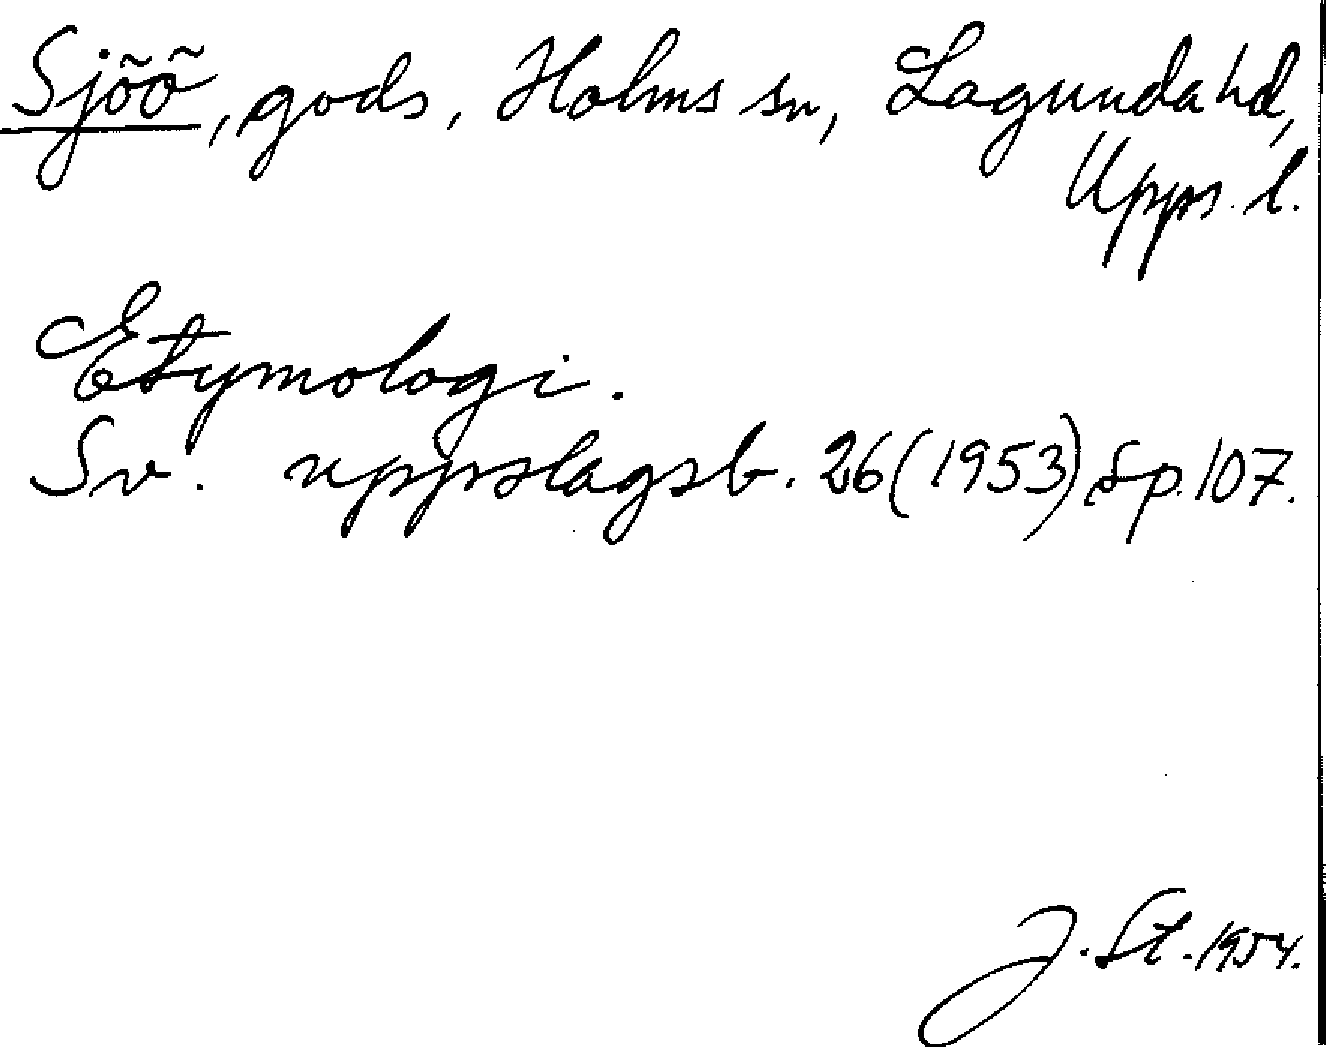 Sjöö, gods, Holms sn, Lagunda hd,
Upps. l.
Etymologi.
Sv. uppslagsb. 26 (1953) sp. 107.
J. St. 1954.